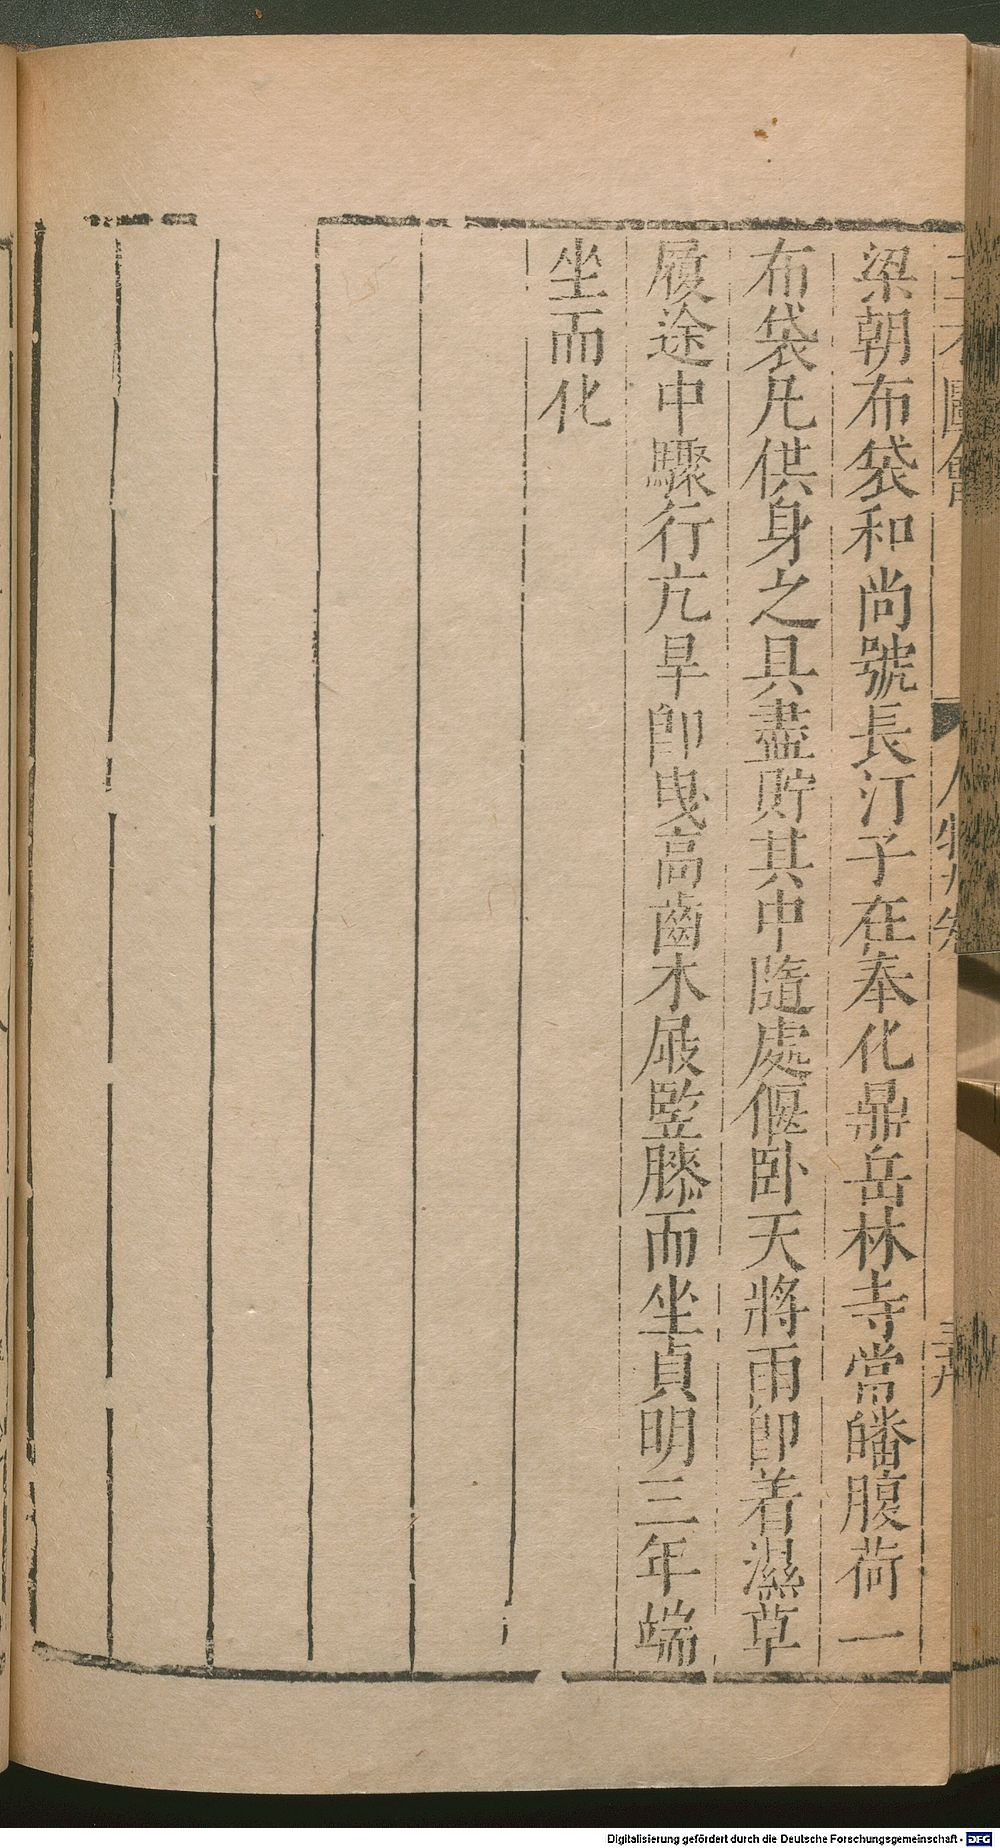 三才圖會 人物九卷 三十九
梁朝布袋和尚號長汀子在奉化鼎岳林寺常皤腹荷一
布袋凡供身之具盡貯其中隨處偃卧天將雨卽着濕草
履途中驟行亢旱卽曳高齒木屐竪膝而坐貞明三年端
坐而化
Digitalisierung gefördert durch die Deutsche Forschungsgemeinschaft - DFG